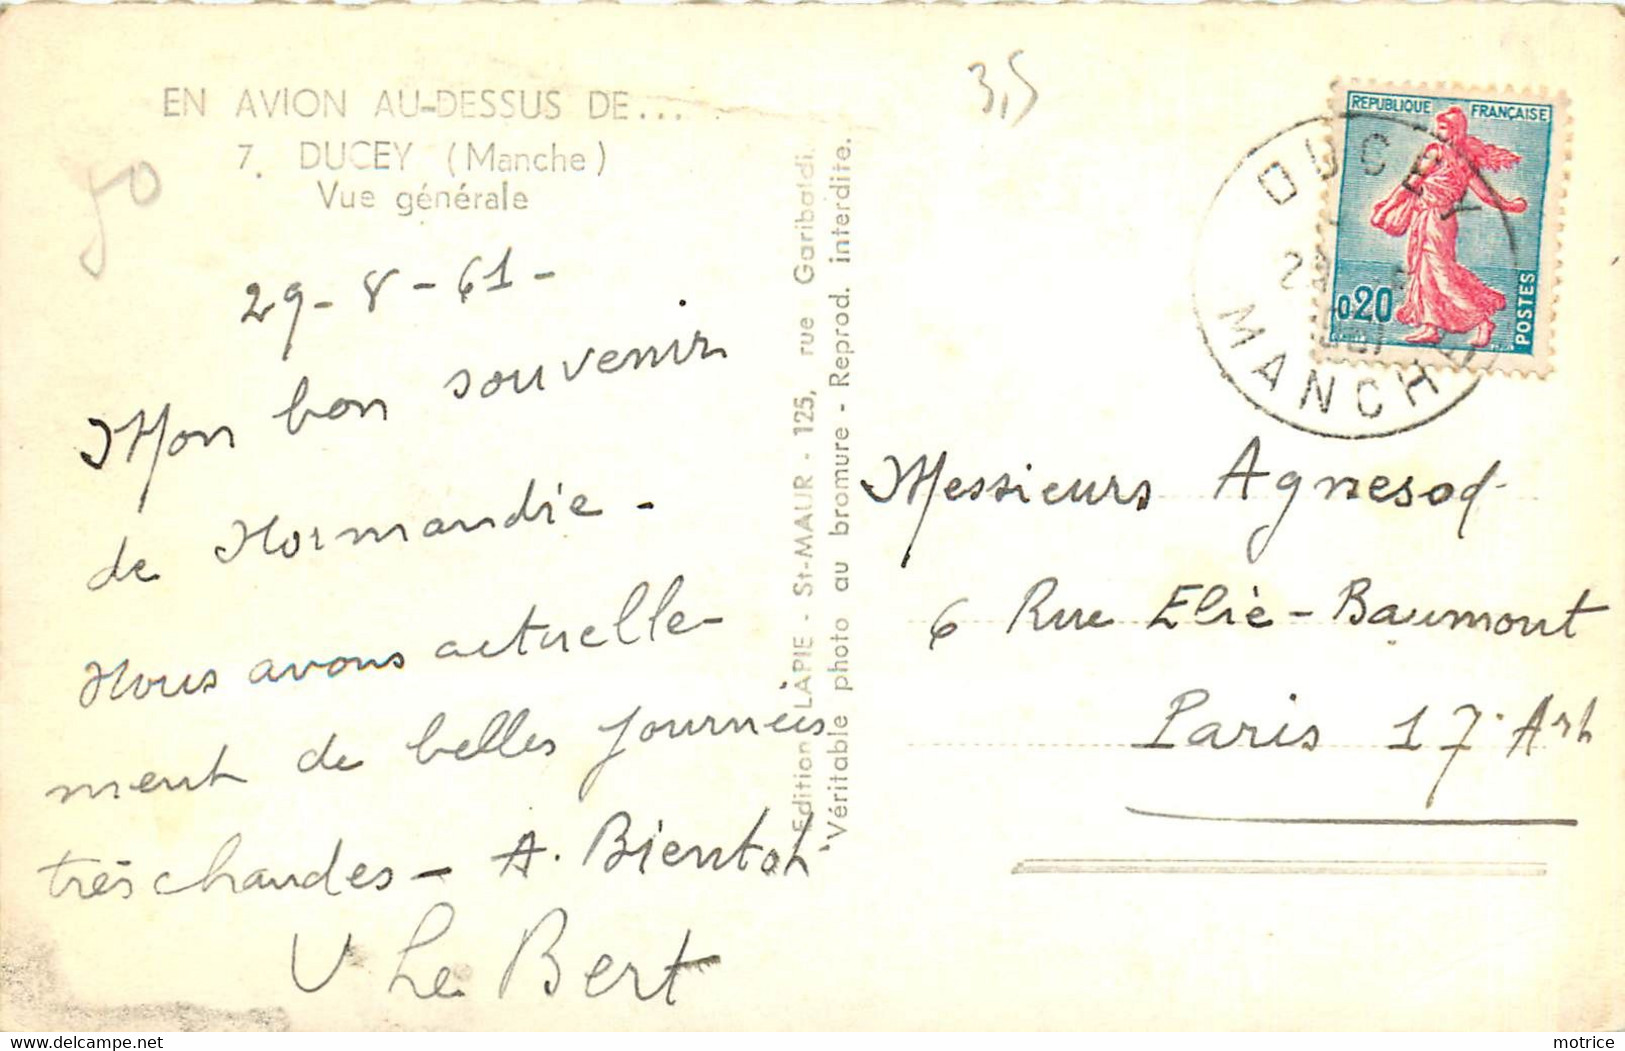 EN AVION AU-DESSUS DE...
7. DUCEY (Manche)
Vue générale
50
3,5
29-8-61-
Mon bon souvenir
de Normandie -
Nous avons actuelle-
ment de belles journées
très chaudes - A. Bientôt
V Le Bert
Edition LAPIE - St-MAUR - 125, rue Garibaldi.
Véritable photo au bromure - Reprod. interdite.
REPUBLIQUE FRANÇAISE
0,20
POSTES
DUCEY
MANCHE
Messieurs Agnesod
6 Rue Elie-Baumont
Paris 17. Art
motrice